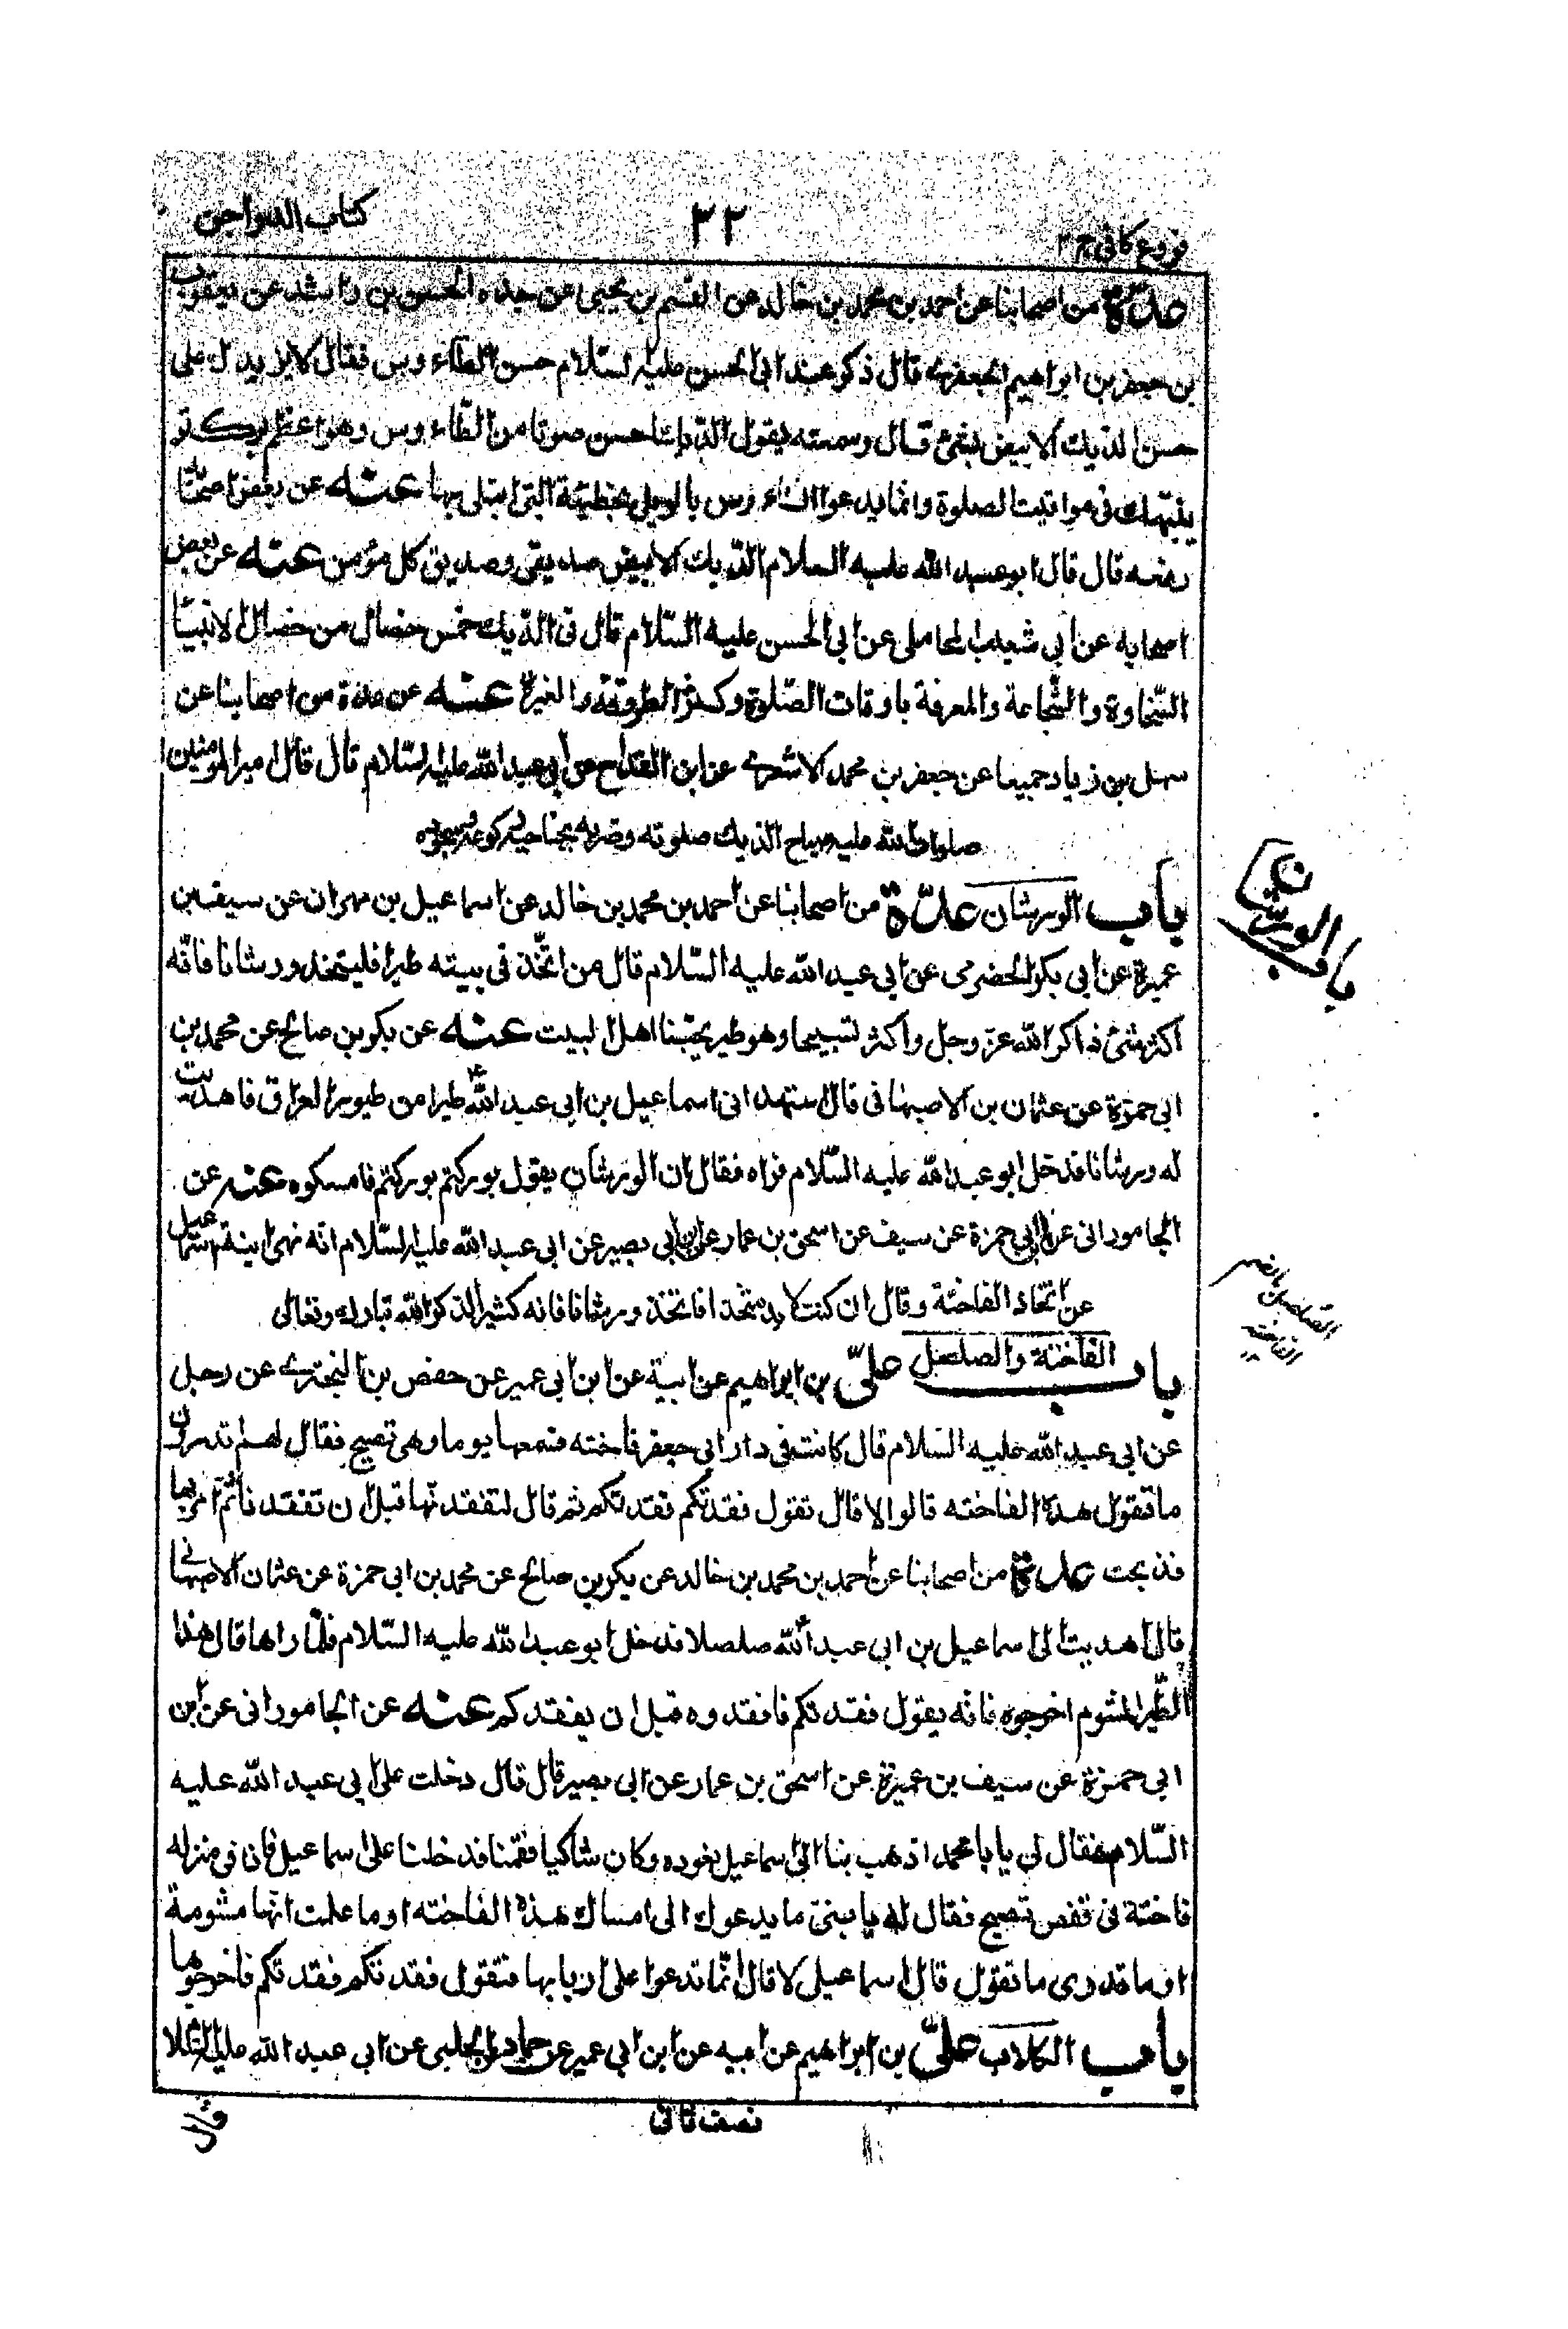 فروع كافى ج ٢
٣٢
كتاب الدواجن
عدّة من اصحابنا عن احمد بن محمد بن خالد عن القسم بن يحيى عن جده الحسن بن راشد عن يعقوب
بن جعفر بن ابراهيم الجعفرى قال ذكر عند ابى الحسن عليه السّلام حسن الطّاءوس فقال لا يزيدك على
حسن الديك الابيض بشئ قال وسمعته يقول الدّيك احسن صوتا من الطّاءوس وهو اعظم بركة
ينبّهك فى مواقيت الصلوة وانما يدعوا الطّاءوس بالويل بخطيئة التى ابتلى بها عنه عن بعض اصحابه
رفعه قال قال ابو عبد الله عليه السلام الدّيك الابيض صديقى وصديق كل مؤمن عنه عن بعض
اصحابه عن ابى شعيب المحاملى عن ابى الحسن عليه السّلام قال فى الدّيك خمس خصال من خصال الانبيا
السّخاوة والشّجاعة والمعرفة باوقات الصّلوة وكثرة الطروقة والغيرة عنه عن عدة من اصحابنا عن
سهل بن زياد جميعا عن جعفر بن محمد الاشعرى عن ابن القداح عن ابى عبد الله عليه السّلام قال قال امير المؤمنين
صلوات الله عليه صياح الديك صلوته وضربه بجناحيه ركوعه وسجوده
باب الورشان عدّة من اصحابنا عن احمد بن محمد بن خالد عن اسماعيل بن مهران عن سيف بن
باب الورشان
عميرة عن ابى بكر الحضرمى عن ابى عبد الله عليه السّلام قال من اتّخذ فى بيته طيرا فليتخذ ورشانا فانّه
اكثر شئ ذاكر الله عزّ وجلّ واكثر تسبيحا وهو طير يحبّنا اهل البيت عنه عن بكر بن صالح عن محمد بن
ابى حمزة عن عثمان بن الاصبهانى قال استهدانى اسماعيل بن ابى عبد الله ع طيرا من طيور العراق فاهديت
له ورشانا فدخل ابو عبد الله عليه السّلام فراه فقال ان الورشان يقول بوركتم بوركتم فامسكوه عنه عن
الجامورانى عن ابن ابى حمزة عن سيف عن اسحق بن عمار عن ابى بصير عن ابى عبد الله عليه السّلام انّه نهى ابنه اسمعيل
عن اتّخاذ الفاختة وقال ان كنت لا بد متّخذا فاتّخذ ورشانا فانه كثير الذكر لله تبارك وتعالى
باب الفاختة والصلصل علىّ بن ابراهيم عن ابيه عن ابن ابى عمير عن حفص بن البخترى عن رجل
الصلصل بالضم
الفاخته
عن ابى عبد الله عليه السّلام قال كانت فى دار ابى جعفر فاخته فسمعها يوما وهى تصيح فقال لهم اتدرون
ما تقول هذه الفاخته قالوا لا قال تقول فقدتكم فقدتكم ثم قال لنفقدنّها قبل ان تفقدنا ثمّ امر بها
فذبحت عدّة من اصحابنا عن احمد بن محمد بن خالد عن بكر بن صالح عن محمد بن ابى حمزة عن عثمان الاصبهانى
قال اهديت الى اسماعيل بن ابى عبد الله ع صلصلا فدخل ابو عبد الله عليه السّلام فلمّا راها قال هذا
الطّير المشوم اخرجوه فانّه يقول فقدتكم فافقدوه قبل ان يفقدكم عنه عن الجامورانى عن ابن
ابى حمزة عن سيف بن عميرة عن اسحق بن عمار عن ابى بصير قال قال دخلت على ابى عبد الله عليه
السّلام فقال لى يا با محمد اذهب بنا الى اسماعيل نعوده وكان شاكيا فقمنا فدخلنا على اسماعيل فاذا فى منزله
فاختة فى قفص تصيح فقال له يا بنىّ ما يدعوك الى امساك هذه الفاخته اوما علمت انّها مشومة
اوما تدرى ما تقول قال اسماعيل لا قال انّما تدعوا على اربابها فتقول فقدتكم فقدتكم فاخرجوها
باب الكلاب علىّ بن ابراهيم عن ابيه عن ابن ابى عمير عن حماد عن الحلبى عن ابى عبد الله عليه السّلام
نصف ثانى
قال